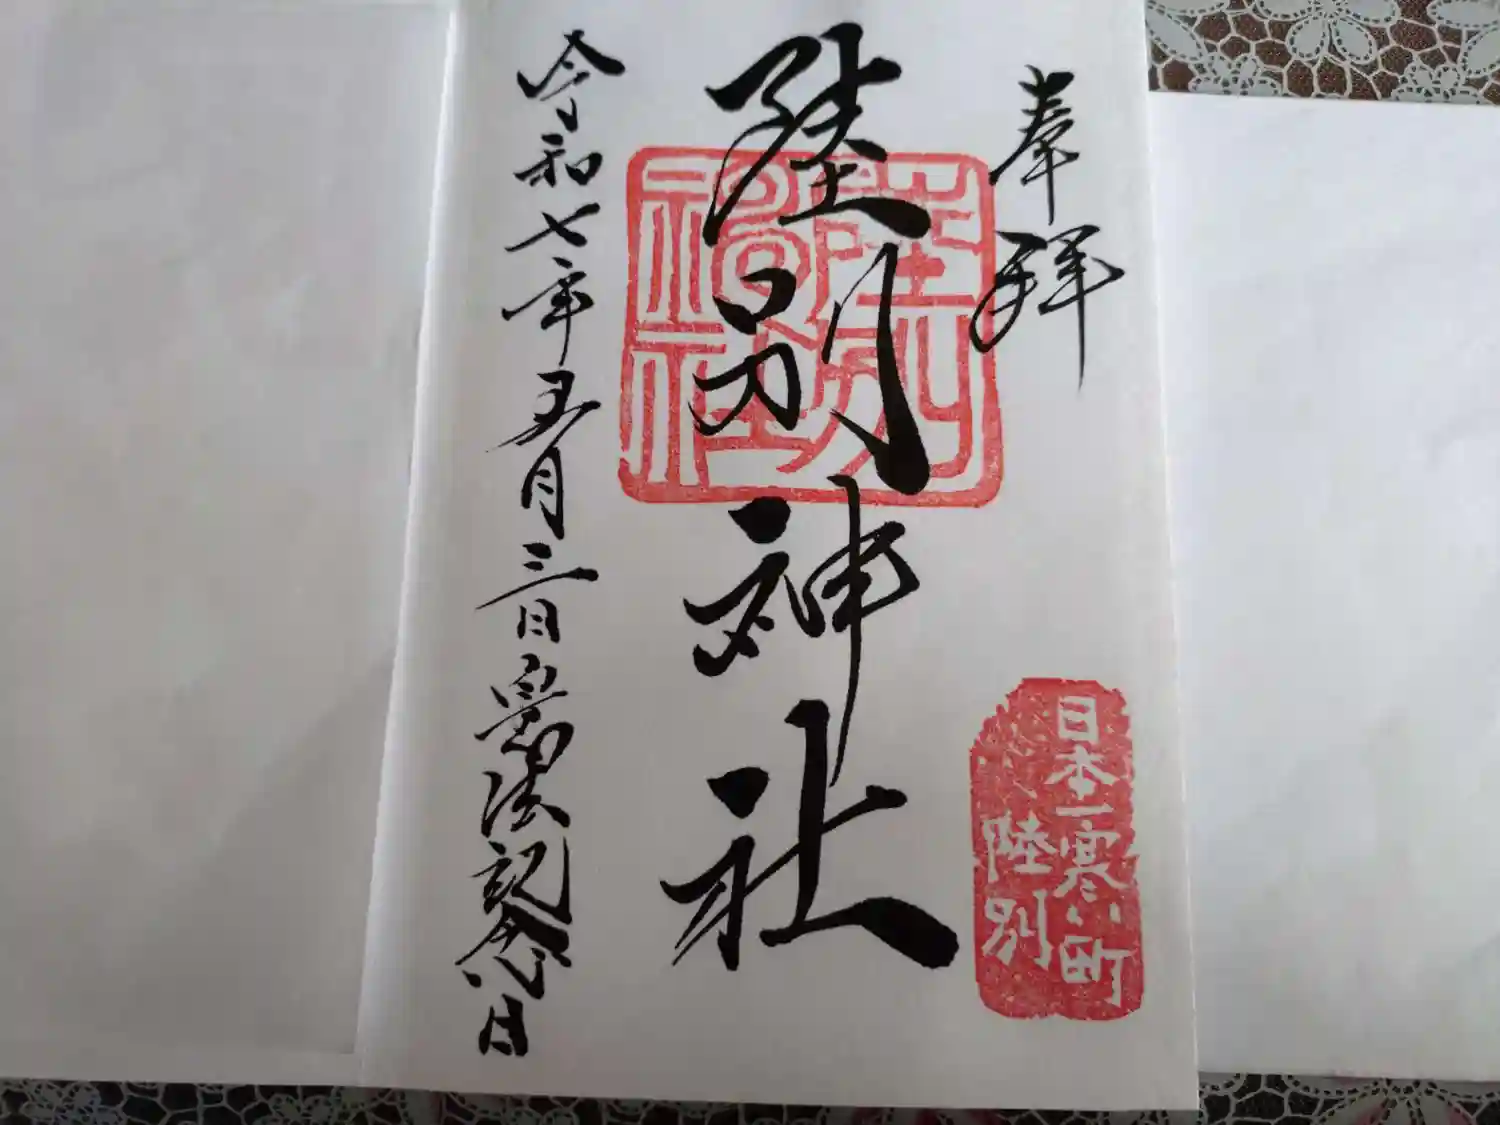 奉拝
日本一寒い町
陸別
陸別神社
陸別
神社
令和七年五月三日憲法記念日